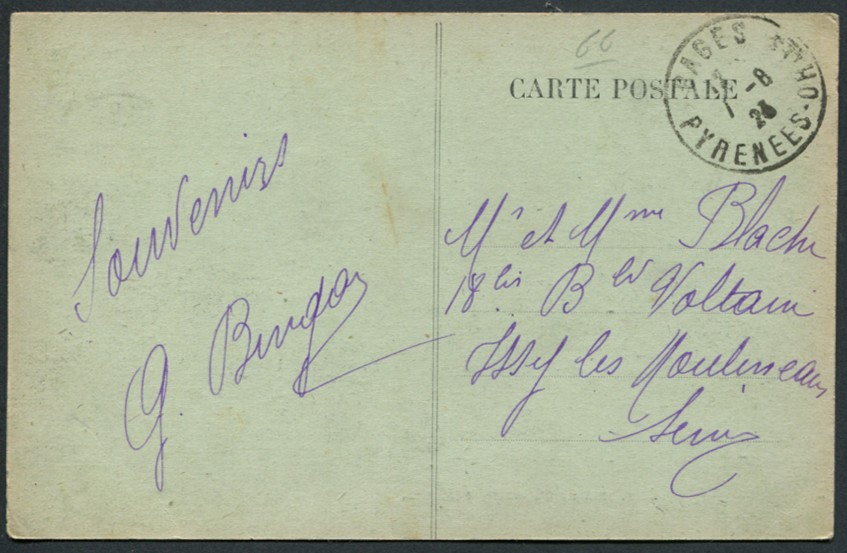 66
CARTE POSTALE
PYRENEES-O
1 -8
23
Souvenirs
G.
Mr et Mme Blache
18bis Bld Voltaire
Issy les Moulineaux
Seine